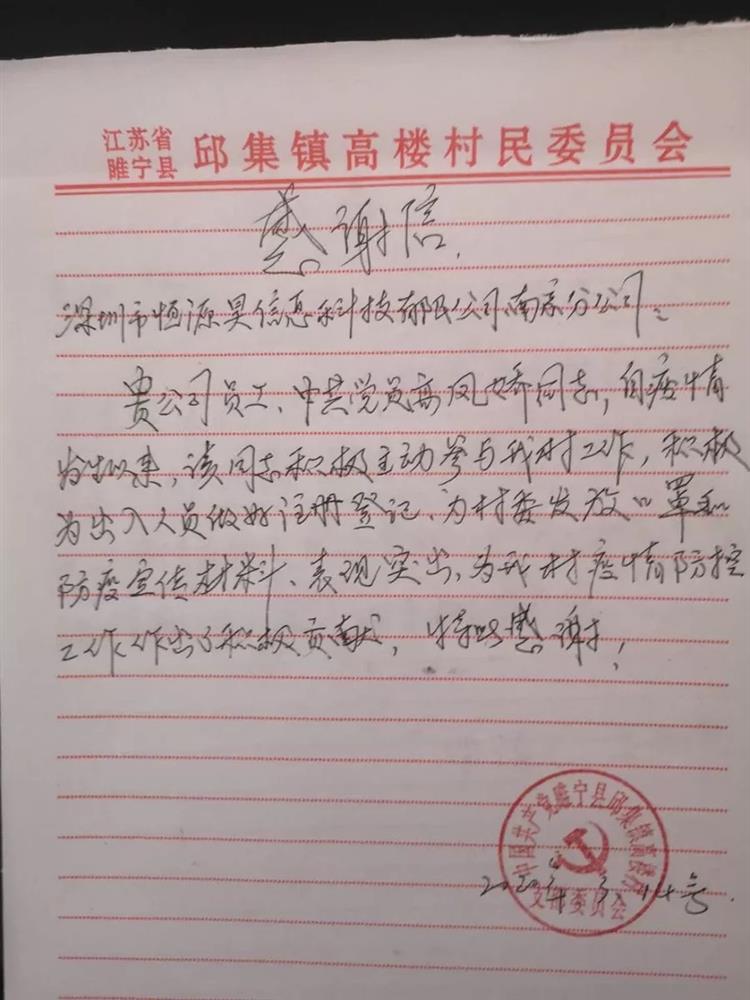 江苏省
睢宁县 邱集镇高楼村民委员会
感谢信
深圳市恒源昊信息科技有限公司南京分公司:
贵公司员工、中共党员高凤娇同志,自疫情
发生以来,该同志积极主动参与我村工作,积极
为出入人员做好注册登记、为村委发放口罩和
防疫宣传材料、表现突出、为我村疫情防控
工作作出了积极贡献,特此感谢!
中国共产党睢宁县邱集镇高楼村
支部委员会
2020年3月14号